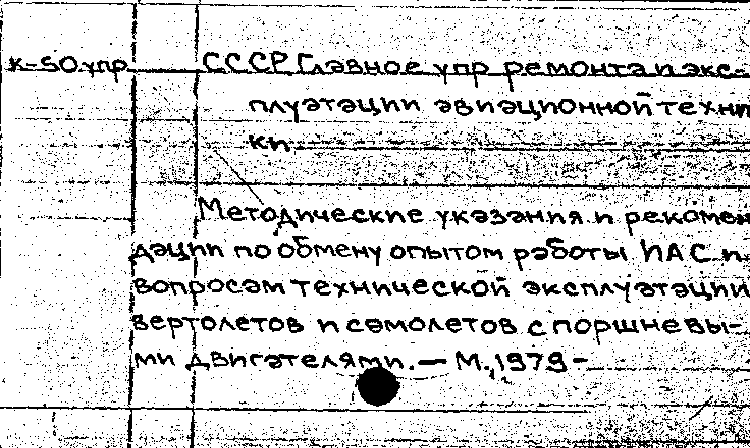 К-50упр СССР. Главное упр ремонта и экс-
плуатации авиационной техни
ки.
Методические указания и рекомен
дации по обмену опытом работы ИАС и
вопросам технической эксплуатации
вертолетов и самолетов с поршневы-
ми двигателями. — М., 1979 –